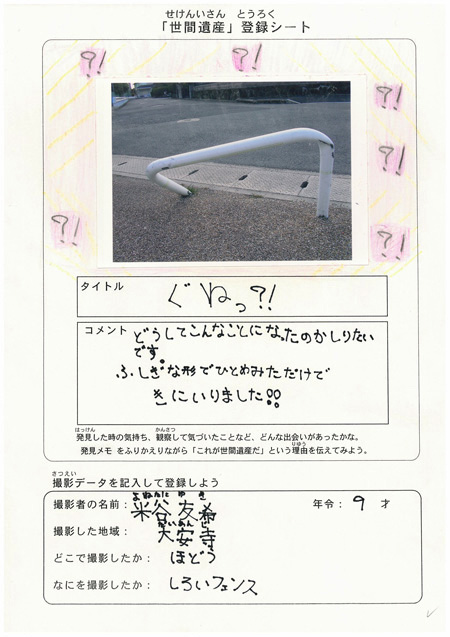 せけんいさん とうろく
「世間遺産」登録シート
?! ?!
?!
?!
?! ?!
タイトル
ぐねっ?!
コメント どうしてこんなことになったのかしりたい
です。
ふしぎな形でひとめみただけで
きにいりました!!
はっけん かんさつ
発見した時の気持ち、観察して気づいたことなど、どんな出会いがあったかな。
りゆう
発見メモ をふりかえりながら「これが世間遺産だ」という理由を伝えてみよう。
さつえい
撮影データを記入して登録しよう
よねたに ゆき
撮影者の名前: 米谷 友希 年令: 9 才
だいあんじ
撮影した地域: 大安寺
どこで撮影したか: ほどう
なにを撮影したか: しろいフェンス